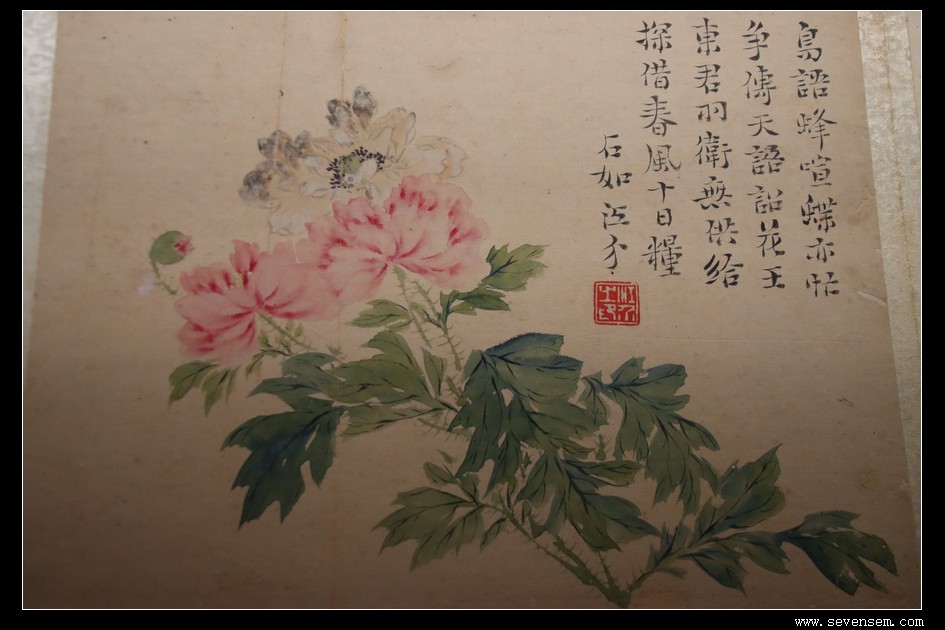 鳥語蜂喧蝶亦忙
争傳天語詔花王
東君羽衛無供給
探借春風十日糧
石如 江介
江介
士印
www.sevensem.com